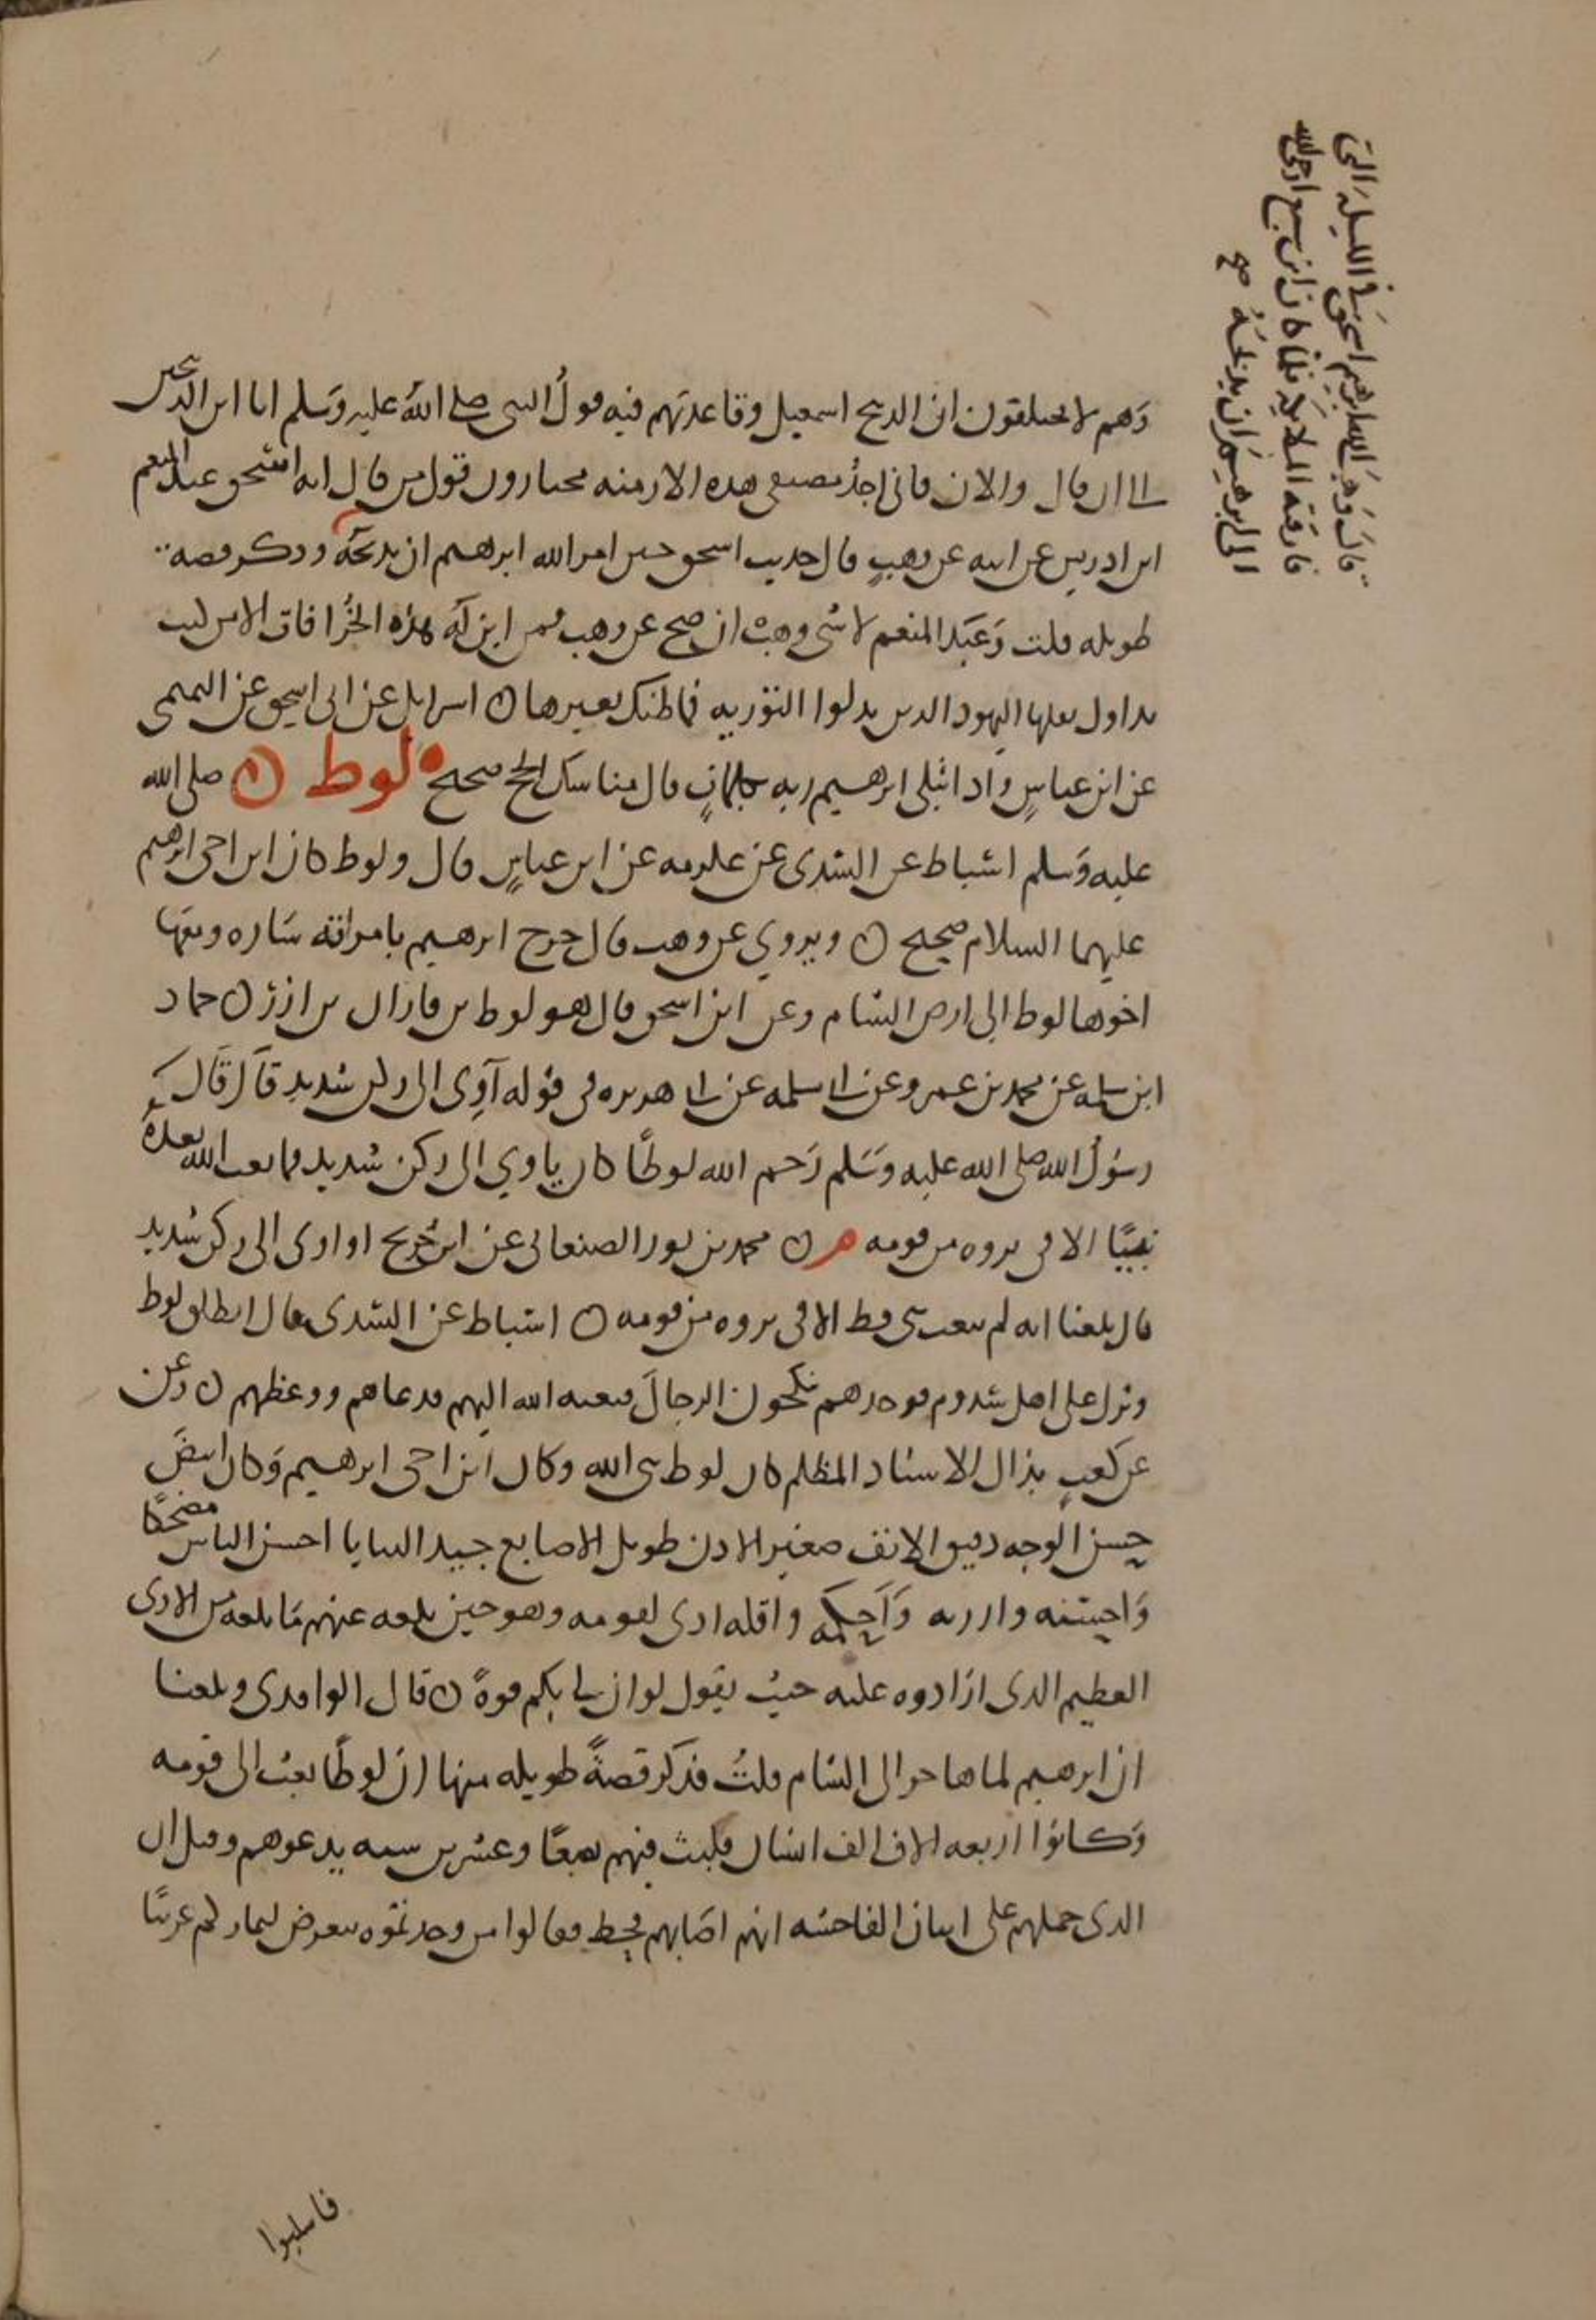 وهم لا يختلفون ان الذبيح اسمعيل وقاعدتهم فيه قول النبي صلى الله عليه وسلم انا ابن الذبيحين
الى ان قال والان فاني اجد مصنفي هذه الازمنه يختارون قول من قال انه اسحق عبد المنعم
ابن ادريس عن ابيه عن وهب قال حديث اسحق حين امر الله ابرهيم ان يذبحه وذكر قصه
طويله قلت وعبد المنعم لا شي وهب ان صح عن وهب فمن اين له هذه الخرافات الا من كتب
تداول نقلها اليهود الذين بدلوا التوريه فما ظنك بغيرها ن اسرايل عن ابي اسحق عن التميمي
عن ابن عباس واذ ابتلى ابرهيم ربه بكلمات قال مناسك الحج صحيح لوط ن صلى الله
عليه وسلم اسباط عن السدي عن عكرمه عن ابن عباس قال ولوط كان ابن اخي ابرهيم
عليهما السلام صحيح ن ويروي عن وهب قال خرج ابرهيم بامراته ساره ومعها
اخوها لوط الى ارض الشام وعن ابن اسحق قال هو لوط بن فاران بن ازر ن حماد
ابن سلمه عن محمد بن عمرو عن ابي سلمه عن ابي هريره في قوله آوي الى ركن شديد قال قال
رسول الله صلى الله عليه وسلم رحم الله لوطا كان ياوي الى ركن شديد فما بعث الله بعده
نبيا الا في ثروه من قومه م ن محمد بن ثور الصنعاني عن ابن جريج او اوى الى ركن شديد
قال بلغنا انه لم يبعث نبي قط الا في ثروه من قومه ن اسباط عن السدي قال انطلق لوط
ونزل على اهل سدوم فوجدهم ينكحون الرجال فبعثه الله اليهم فدعاهم ووعظهم ن وعن
عن كعب بذاك الاسناد المظلم كان لوط نبي الله وكان ابن اخي ابرهيم وكان ابيض
حسن الوجه دقيق الانف صغير الاذن طويل الاصابع جيد الثنايا احسن الناس مضحكا
واحسنه وارزنه وآحكمه واقله اذى لقومه وهو حين بلغه عنهم ما بلغه من الاذى
العظيم الذي ارادوه عليه حيث يقول لو ان لي بكم قوة ن قال الواقدي وبلغنا
ان ابرهيم لما هاجر الى الشام قلت فذكر قصة طويله منها ان لوطا بعث الى قومه
وكانوا اربعه الاف الف انسان فلبث فيهم بضعا وعشرين سنه يدعوهم وقيل ان
الذي حملهم على اتيان الفاحشه انهم اصابهم قحط فقالوا من وجدتموه يتعرض لثماركم غريبا
فاسلبوا
قال وهب اسرى ابرهيم اسحق في الليله التي
فارقته الملايكه فلما كان ابن سبع اوحى الله
الى ابرهيم ان يذبحه صح